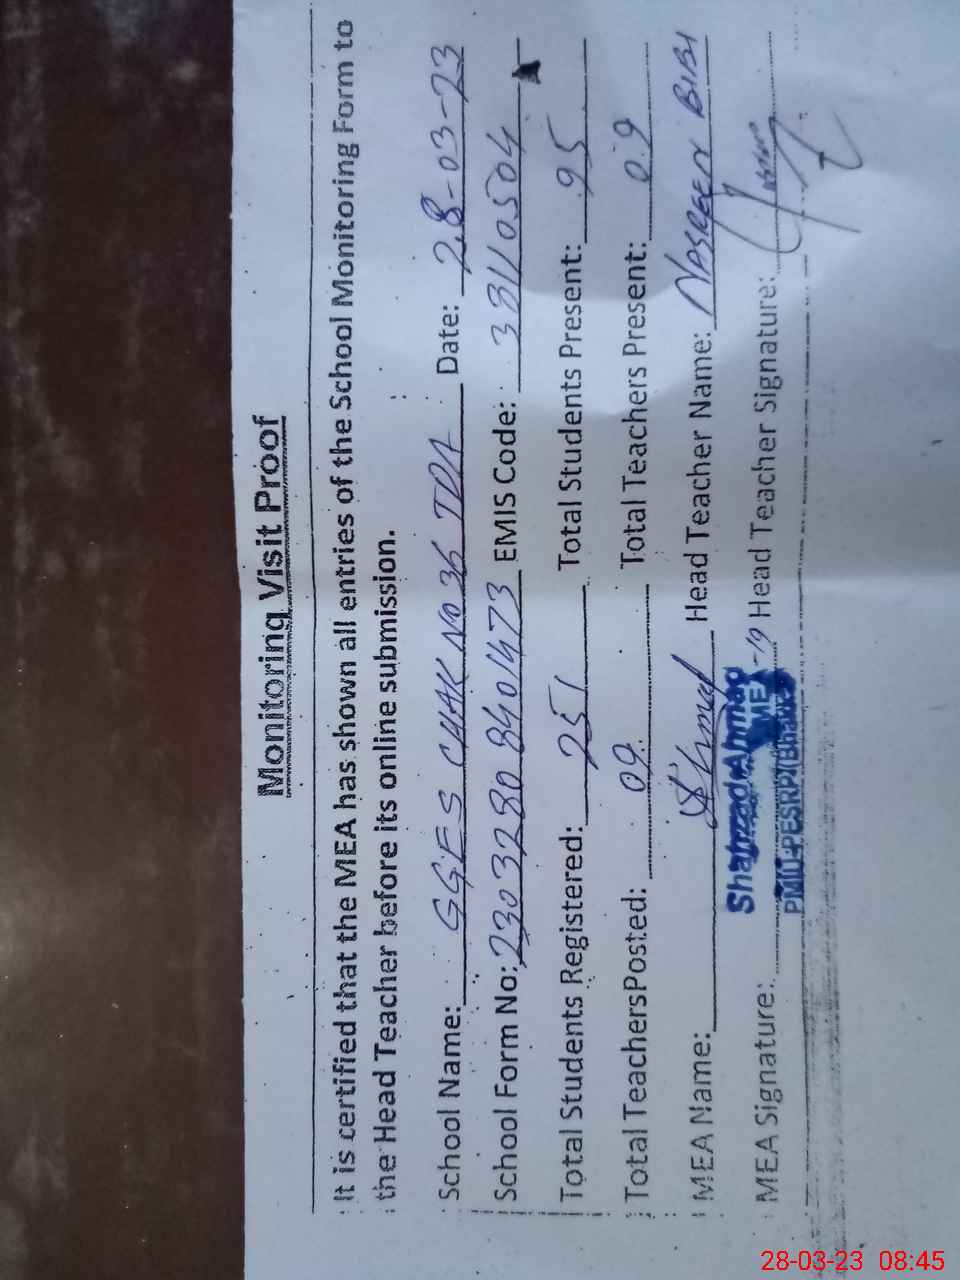 Monitoring Visit Proof
It is certified that the MEA has shown all entries of the School Monitoring Form to
the Head Teacher before its online submission.
School Name: GGES CHAK NO 36 TDA Date: 28-03-23
School Form No: 23032808401473 EMIS Code: 38110504
Total Students Registered: 251 Total Students Present: 95
Total TeachersPosted: 09 Total Teachers Present: 09
MEA Name: Head Teacher Name: NASREEN BIBI
Shahzad Ahmed
MEA Signature: MEA -19 Head Teacher Signature:
PMIU-PESRP(Bhakkar
28-03-23 08:45